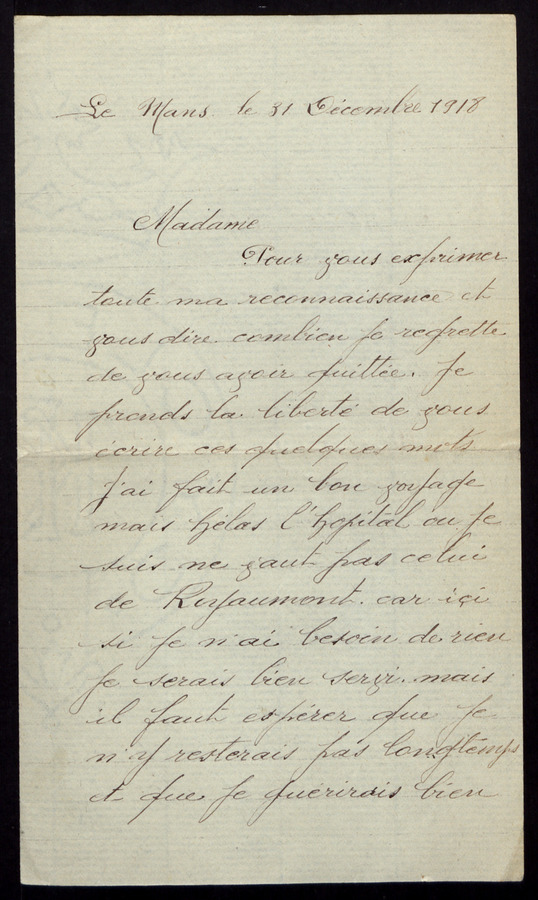 Le Mans le 31 Décembre 1918
Madame
Pour vous exprimer
toute ma reconnaissance et
vous dire combien je regrette
de vous avoir quittée. Je
prends la liberté de vous
écrire ces quelques mots
J'ai fait un bon voyage
mais hélas l'hopital ou je
suis ne vaut pas celui
de Royaumont. car içi
si je n'ai besoin de rien
je serais bien servi. mais
il faut espérer que je
n'y resterais pas longtemps
et que je guérirais bien